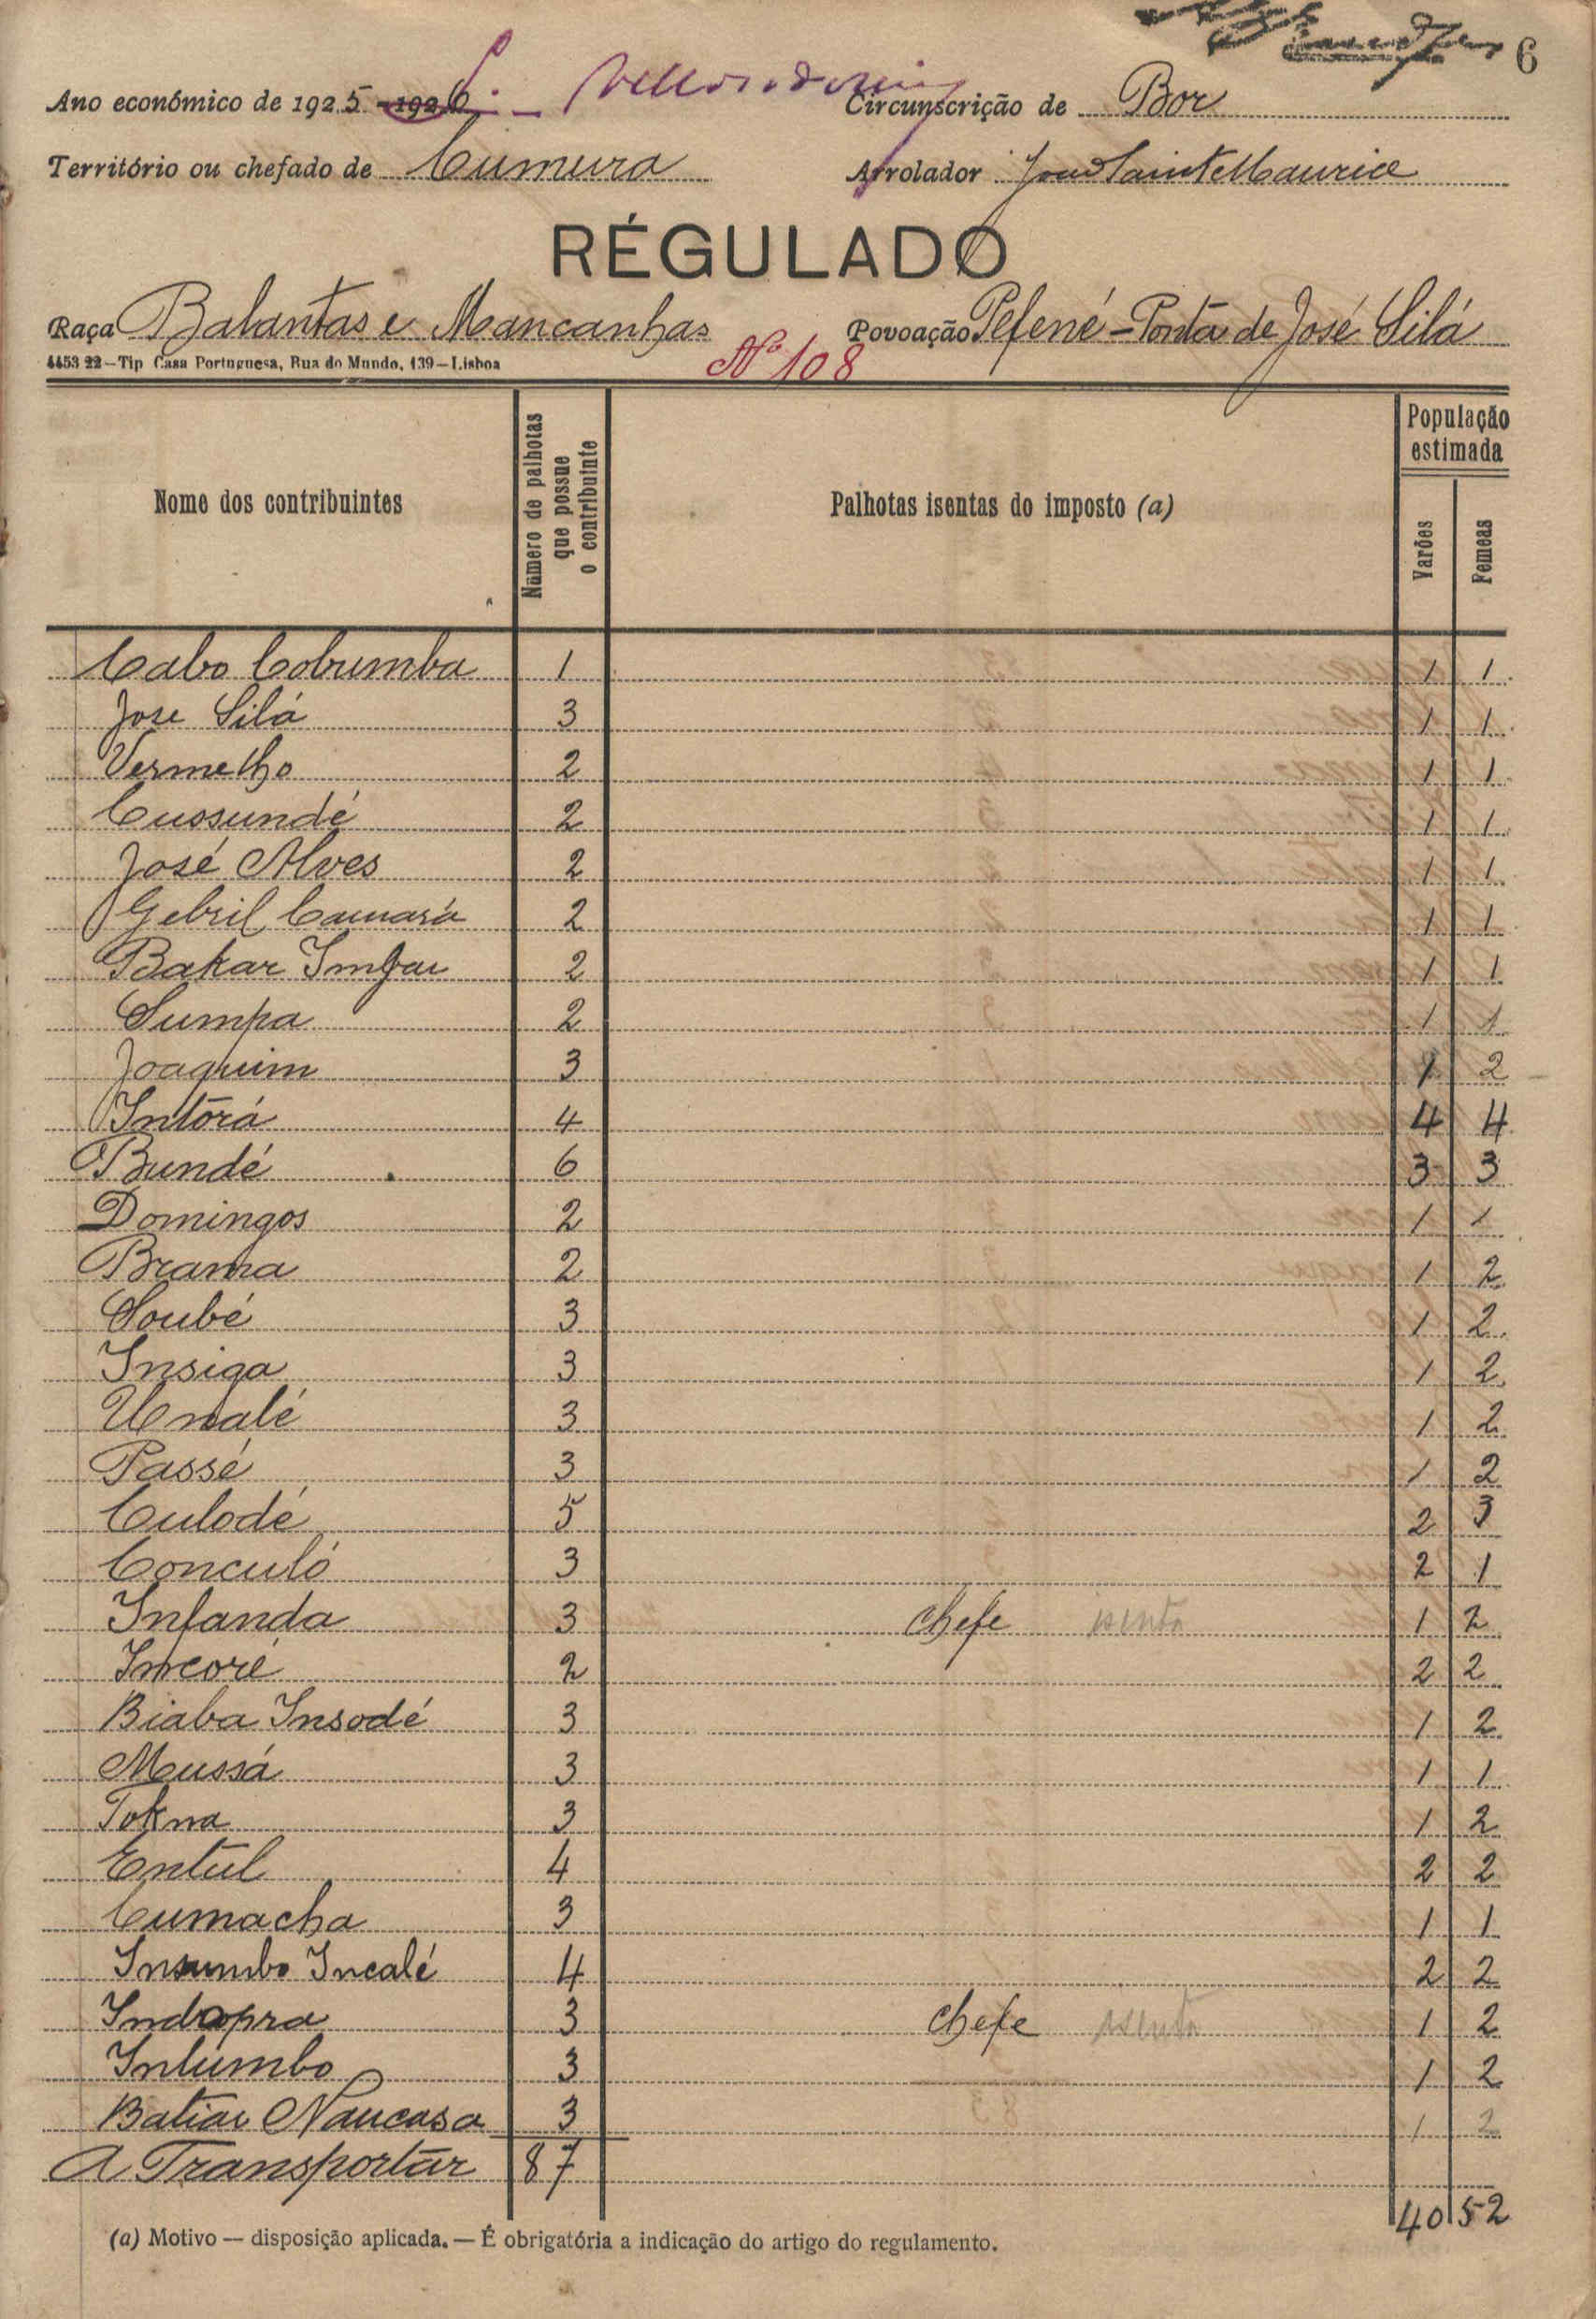 6
Ano económico de 1925-1926 Circunscrição de Bor
Território ou chefado de Cumura Arrolador Saint Maurice
RÉGULADO
Raça Balantas e Mancanhas Povoação Pefené - Ponta de José Silá
4453 22 — Tip Casa Portuguesa, Rua do Mundo, 139 — Lisboa Nº 108
Nome dos contribuintes Número de palhotas que possue o contribuinte Palhotas isentas do imposto (a) População estimada Varões Femeas
Cabo Columba 1 1 1
Jose Silá 3 1 1
Vermelho 2 1 1
Cussundé 2 1 1
José Alves 2 1 1
Gebril Camará 2 1 1
Bakar 2 1 1
Sumpa 2 1 1
Joaquim 3 1 2
Intorá 4 4 4
Bundé 6 3 3
Domingos 2 1 1
Brama 2 1 2
Soubé 3 1 2
Insiga 3 1 2
Unalé 3 1 2
Passé 3 1 2
Culodé 5 2 3
Conculó 3 2 1
Infanda 3 chefe isento 1 2
Incoré 2 2 2
Biaba Insodé 3 1 2
Mussá 3 1 1
Tokna 3 1 2
Entul 4 2 2
Cumacha 3 1 1
Insumbo Incalé 4 2 2
Indopra 3 chefe isento 1 2
Intumbo 3 1 2
Batiar Naucasa 3 1 2
A Transportar 87
40 52
(a) Motivo — disposição aplicada. — É obrigatória a indicação do artigo do regulamento.